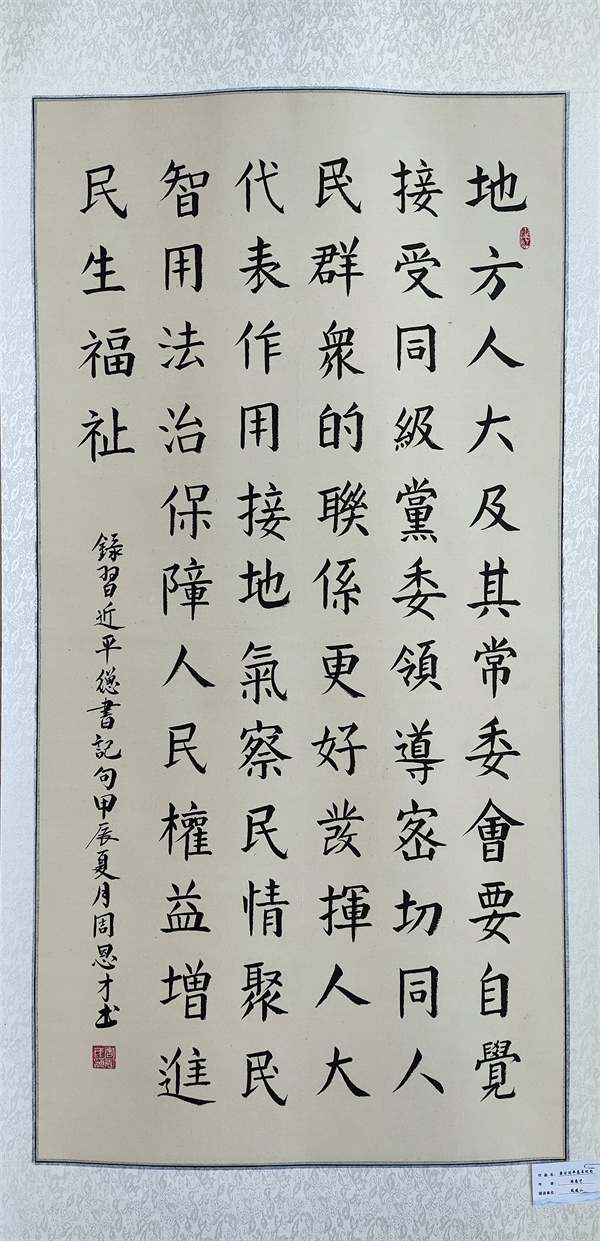 地方人大及其常委會要自覺
接受同級黨委領導密切同人
民群衆的聯係更好發揮人大
代表作用接地氣察民情聚民
智用法治保障人民權益增進
民生福祉
錄習近平總書記句甲辰夏月周恩才書